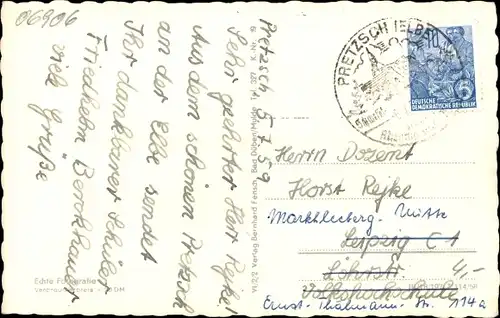 06906
Pretzsch 5.7.59
Sehr geehrter Herr Rejke!
Aus dem schönen Pretzsch
an der Elbe sendet
Ihr dankbarer Schüler
Friedhelm
viel Grüße
Echte Fotografie
Verlag Bernhard Fensch, Bad Düben/Mulde
PRETZSCH (ELBE)
10
5
DEUTSCHE
DEMOKRATISCHE REPUBLIK
Herrn Dozent
Horst Rejke
Markkleeberg-Mitte
Leipzig C1
Löhrstr.
Volkshochschule
4,-
Ernst-Thälmann-Str. 114a